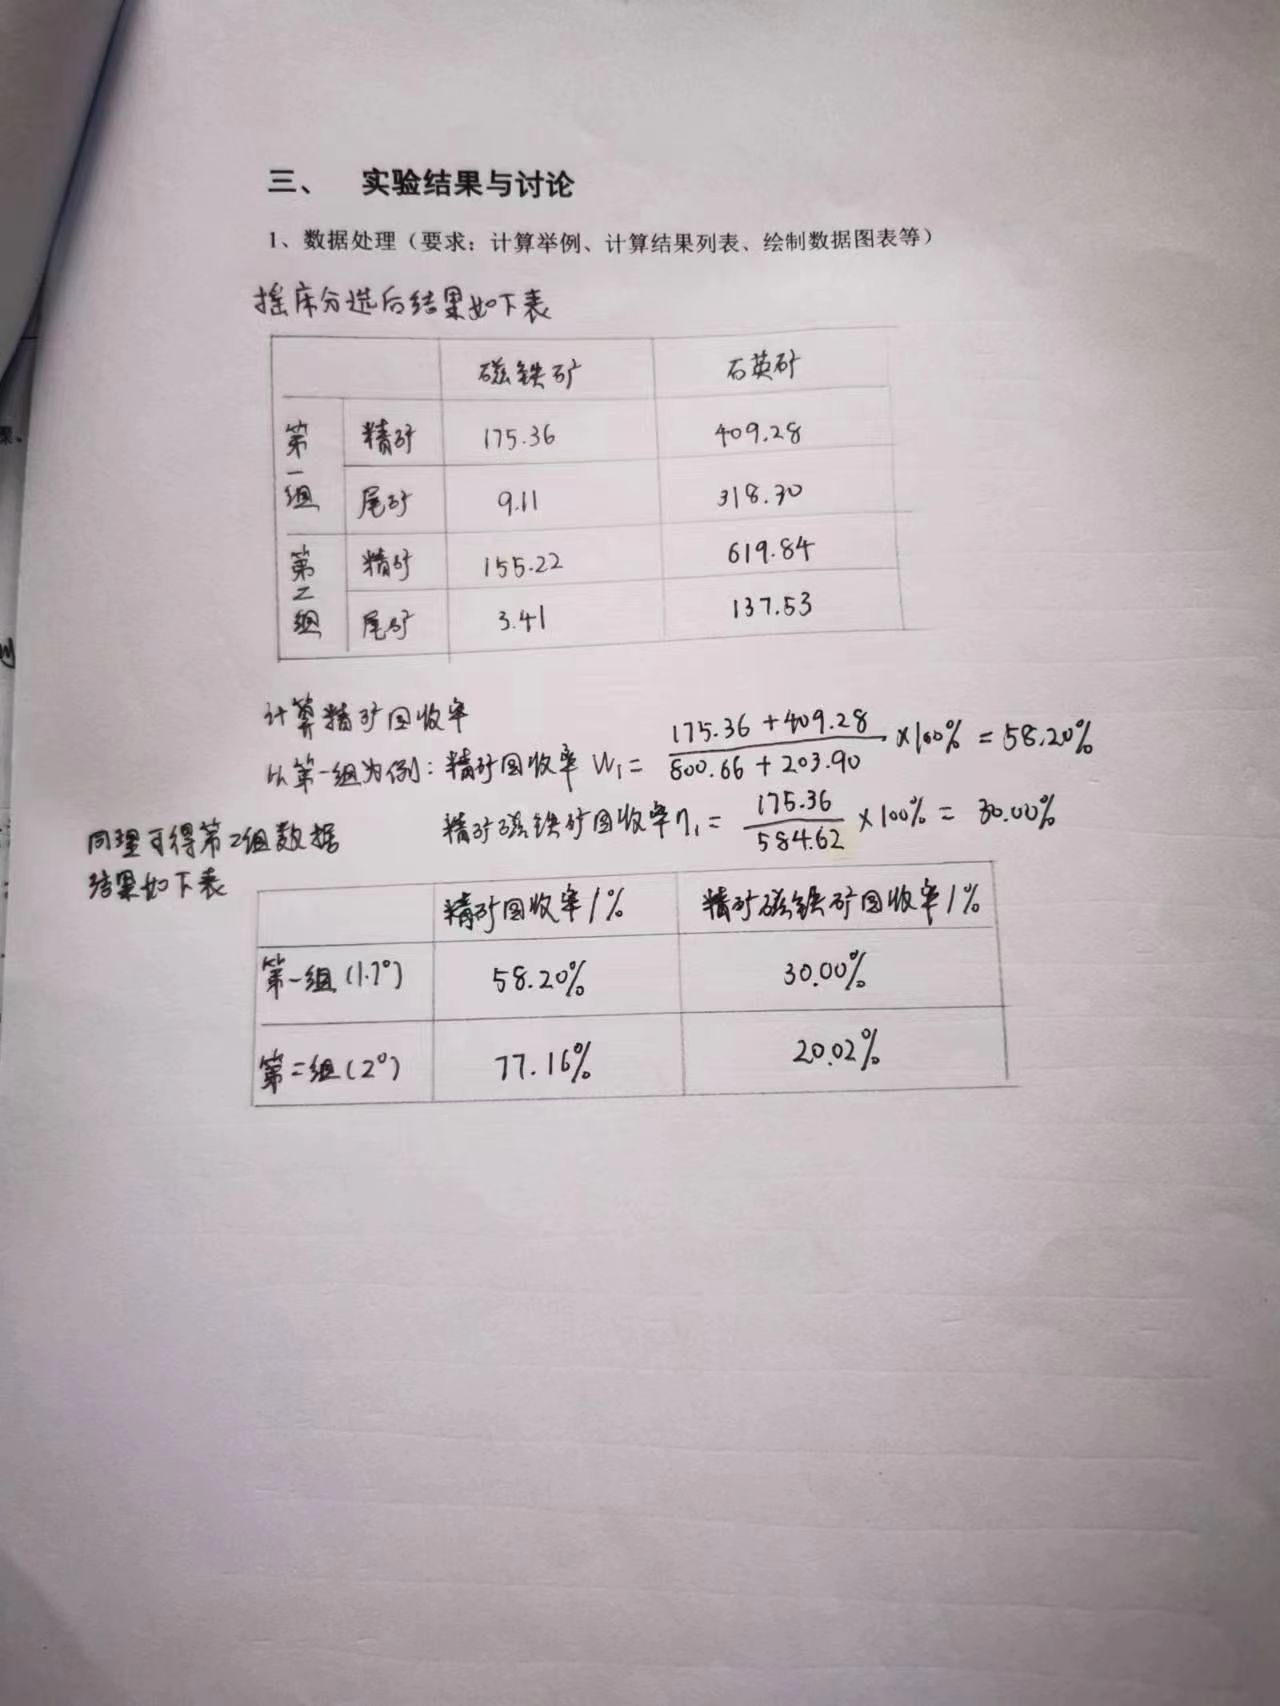 三、 实验结果与讨论
1、数据处理（要求：计算举例、计算结果列表、绘制数据图表等）
摇床分选后结果如下表
磁铁矿 石英矿
第一组 精矿 175.36 409.28
尾矿 9.11 318.30
第二组 精矿 155.22 619.84
尾矿 3.41 137.53
计算精矿回收率
以第一组为例：精矿回收率 W₁ = (175.36 + 409.28)/(800.66 + 203.90) × 100% = 58.20%
精矿磁铁矿回收率 η₁ = 175.36/584.62 × 100% = 30.00%
同理可得第2组数据
结果如下表
精矿回收率/% 精矿磁铁矿回收率/%
第一组(1.7°) 58.20% 30.00%
第二组(2°) 77.16% 20.02%